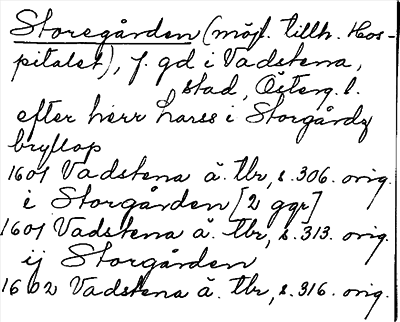 Storegården (möjl. tillh. Hos-
pitalet), f. gd i Vadstena,
stad, Österg. l.
efter herr larss i Storgårdz
bryllop
1601 Vadstena ä. tbr, s. 306. orig.
i Storgården [2 ggr]
1601 Vadstena ä. tbr, s. 313. orig.
ij Storgården
1602 Vadstena ä. tbr, s. 316. orig.